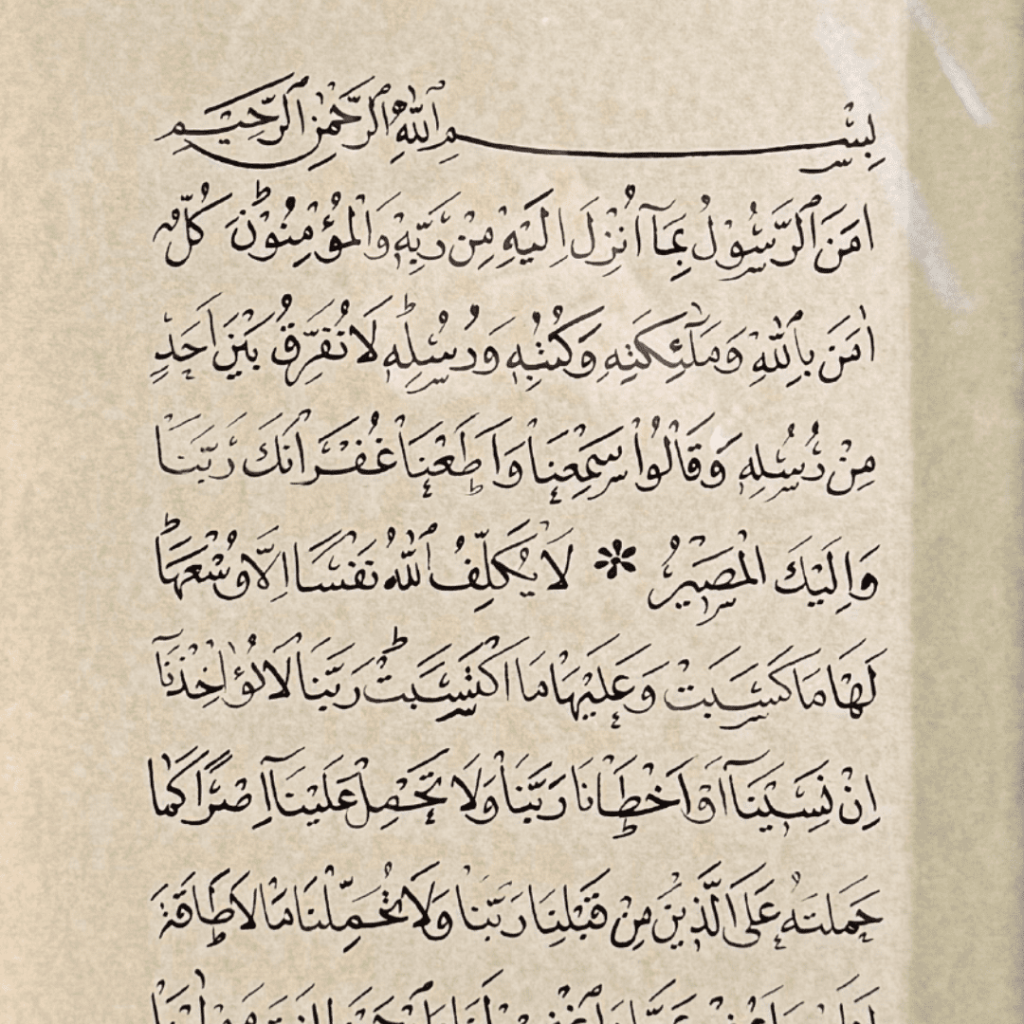 بِسْمِ اللّٰهِ الرَّحْمٰنِ الرَّحِيمِ
اٰمَنَ الرَّسُوْلُ بِمَآ اُنْزِلَ اِلَيْهِ مِنْ رَبِّهٖ وَالْمُؤْمِنُوْنَ ط كُلٌّ
اٰمَنَ بِاللّٰهِ وَمَلٰٓئِكَتِهٖ وَكُتُبِهٖ وَرُسُلِهٖ ط لَا نُفَرِّقُ بَيْنَ اَحَدٍ
مِنْ رُسُلِهٖ وَقَالُوْا سَمِعْنَا وَاَطَعْنَا غُفْرَانَكَ رَبَّنَا
وَاِلَيْكَ الْمَصِيْرُ * لَا يُكَلِّفُ اللّٰهُ نَفْسًا اِلَّا وُسْعَهَا ط
لَهَا مَا كَسَبَتْ وَعَلَيْهَا مَا اكْتَسَبَتْ ط رَبَّنَا لَا تُؤَاخِذْنَآ
اِنْ نَسِيْنَآ اَوْ اَخْطَاْنَا رَبَّنَا وَلَا تَحْمِلْ عَلَيْنَآ اِصْرًا كَمَا
حَمَلْتَهُ عَلَى الَّذِيْنَ مِنْ قَبْلِنَا رَبَّنَا وَلَا تُحَمِّلْنَا مَا لَا طَاقَةَ